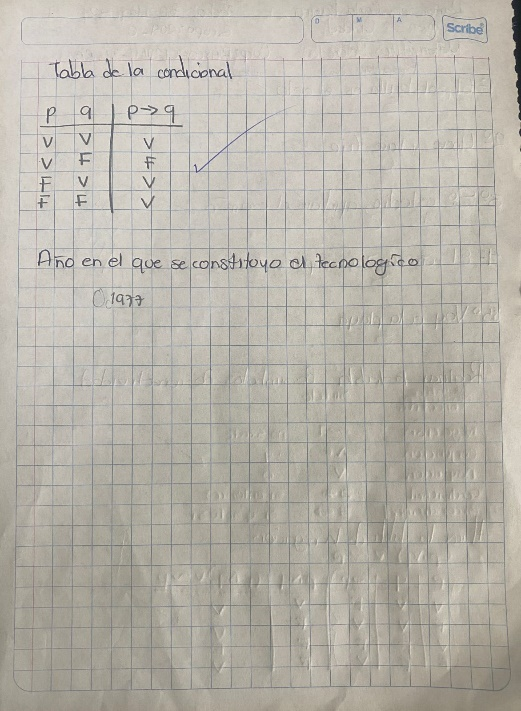 D M A
Scribe
Tabla de la condicional
p q p→q
V V V
V F F
F V V
F F V
Año en el que se constituyo el tecnologico
1977